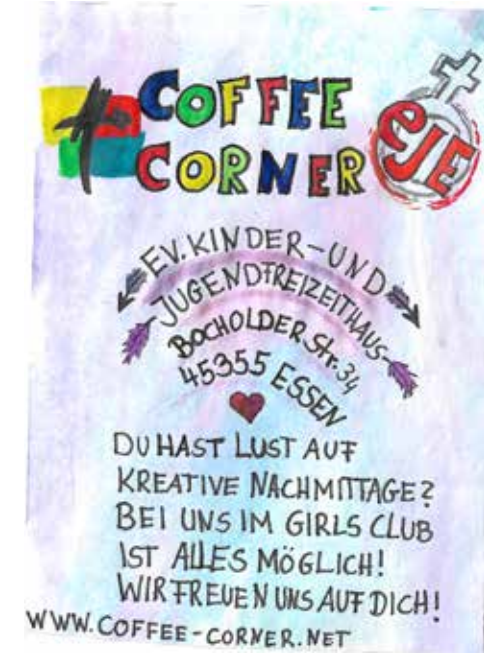 COFFEE
CORNER
eJE
EV. KINDER-UND
JUGENDFREIZEITHAUS
BOCHOLDER Str. 34
45355 ESSEN
DU HAST LUST AUF
KREATIVE NACHMITTAGE?
BEI UNS IM GIRLS CLUB
IST ALLES MÖGLICH!
WIR FREUEN UNS AUF DICH!
WWW.COFFEE-CORNER.NET